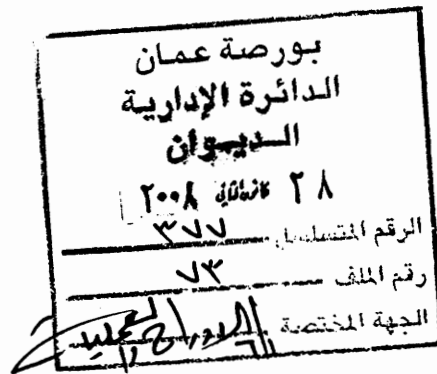 بورصة عمان
الدائرة الإدارية
الديوان
٢٨ كانون الثاني ٢٠٠٨
الرقم المتسلسل ٣٧٧
رقم الملف ٧٣
الجهة المختصة